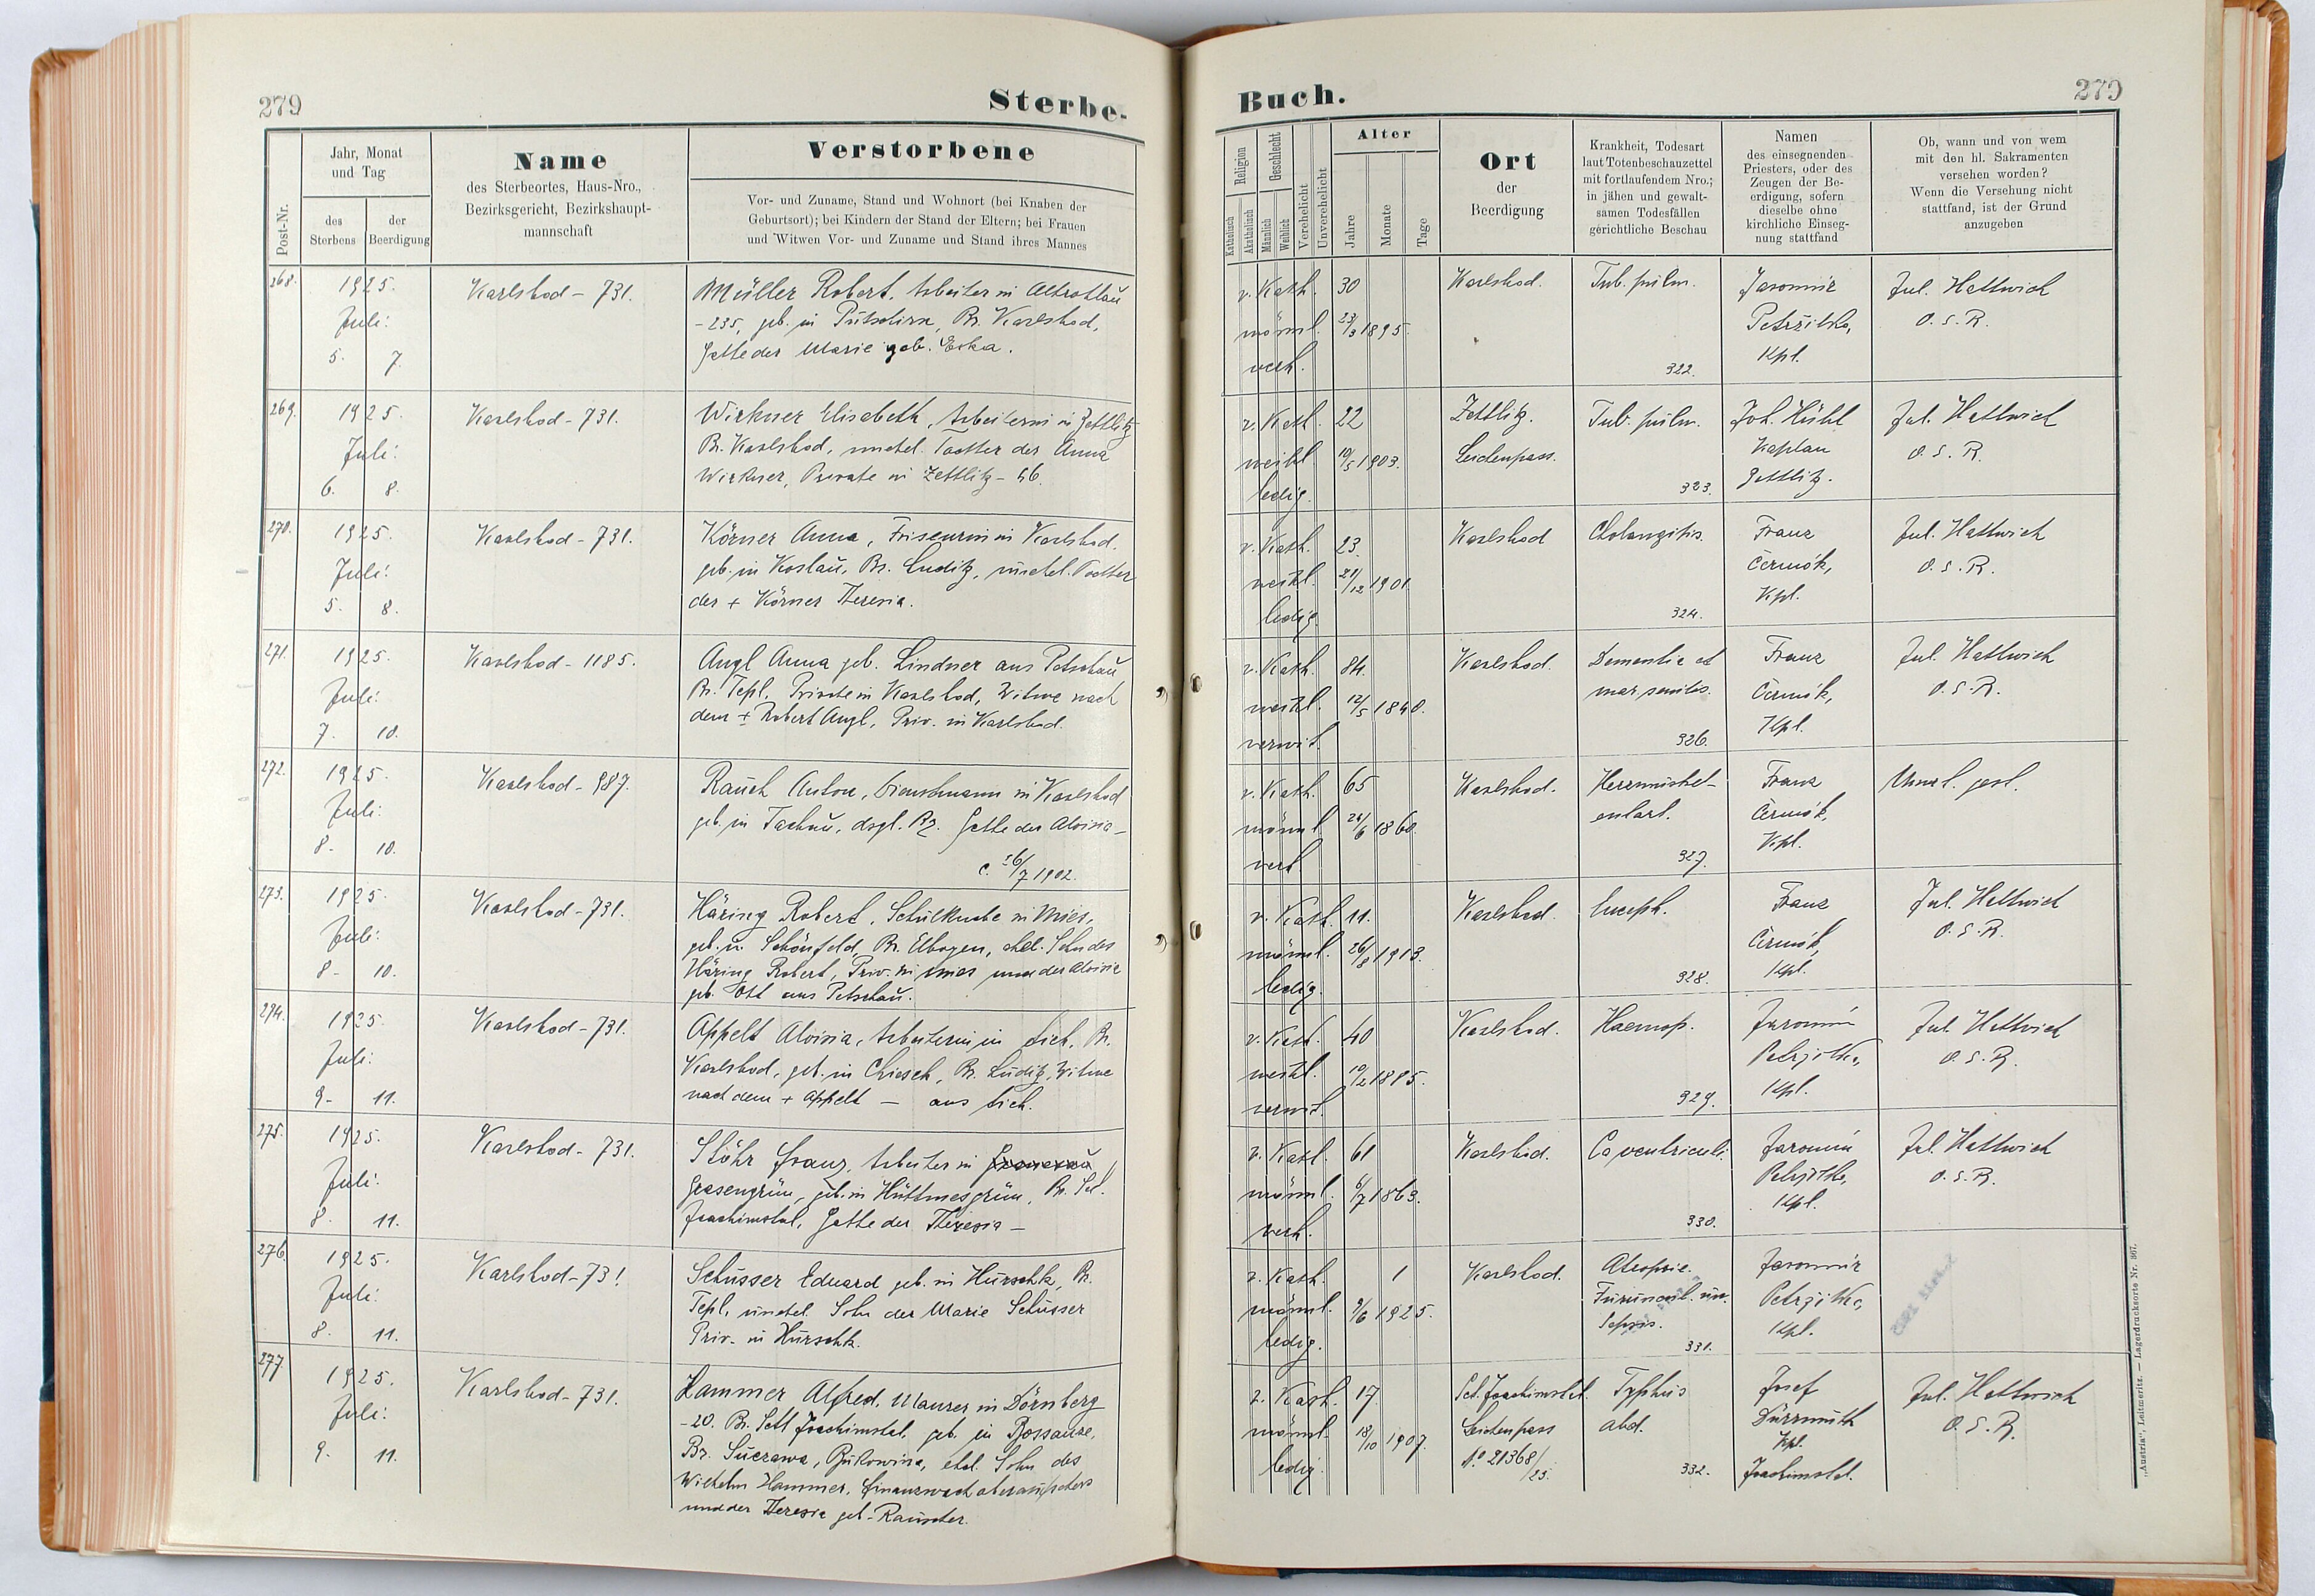 279
Sterbe-
Post-Nr.
Jahr, Monat
und Tag
des
Sterbens
der
Beerdigung
Name
des Sterbeortes, Haus-Nro.,
Bezirksgericht, Bezirkshaupt-
mannschaft
Verstorbene
Vor- und Zuname, Stand und Wohnort (bei Knaben der
Geburtsort); bei Kindern der Stand der Eltern; bei Frauen
und Witwen Vor- und Zuname und Stand ihres Mannes
268.
1925.
Juli:
5. 7.
Karlsbad - 731.
Müller Robert, Arbeiter in Altrohlau
- 235, geb. in Putschirn, Bz. Karlsbad,
Gatte der Marie geb. Eska.
269.
1925.
Juli:
6. 8.
Karlsbad - 731.
Wirkner Elisabeth, Arbeiterin in Zettlitz
Bz. Karlsbad, unehel. Tochter der Anna
Wirkner, Private in Zettlitz - 46.
270.
1925.
Juli:
5. 8.
Karlsbad - 731.
Körner Anna, Friseurin in Karlsbad.
geb. in Koslau, Bz. Luditz, unehel. Tochter
der + Körner Theresia.
271.
1925.
Juli:
7. 10.
Karlsbad - 1185.
Angl Anna geb. Lindner aus Petschau
Bz. Tepl, Private in Karlsbad, Witwe nach
dem + Robert Angl, Priv. in Karlsbad.
272.
1925.
Juli:
8. 10.
Karlsbad - 987.
Rauch Anton, Dienstmann in Karlsbad
geb. in Tachau, dsgl. Bz. Gatte der Aloisia -
c. 26/7 1902.
273.
1925.
Juli:
8. 10.
Karlsbad - 731.
Häring Robert, Schulknabe in Mies,
geb. in Schönfeld, Bz. Elbogen, ehel. Sohn des
Häring Robert, Priv. in Mies und der Aloisia
geb. Ott aus Petschau.
274.
1925.
Juli:
9. 11.
Karlsbad - 731.
Appelt Aloisia, Arbeiterin in Lich, Bz.
Karlsbad, geb. in Chiesch, Bz. Luditz, Witwe
nach dem + Appelt - aus Lich.
275.
1925.
Juli:
8. 11.
Karlsbad - 731.
Stöhr Franz, Arbeiter in
Grasengrün, geb. in Hüttmesgrün, Bz. Sct.
Joachimstal, Gatte der Theresia -
276.
1925.
Juli:
8. 11.
Karlsbad - 731
Schusser Eduard geb. in Hurschk, Bz.
Tepl, unehel. Sohn der Marie Schusser
Priv. in Hurschk.
277
1925.
Juli:
9. 11.
Karlsbad - 731.
Hammer Alfred, Maurer in Dörnberg
- 20. Bz. Sct Joachimstal, geb. in Bossanze,
Bz. Suczawa, Bukowina, ehel. Sohn des
Wilhelm Hammer, Finanzwachoberaufsehers
und der Theresia geb. Rauscher.
Buch.
279
Religion
Katholisch
Akatholisch
Geschlecht
Männlich
Weiblich
Verehelicht
Unverehelicht
Alter
Jahre
Monate
Tage
Ort
der
Beerdigung
Krankheit, Todesart
laut Totenbeschauzettel
mit fortlaufendem Nro.;
in jähen und gewalt-
samen Todesfällen
gerichtliche Beschau
Namen
des einsegnenden
Priesters, oder des
Zeugen der Be-
erdigung, sofern
dieselbe ohne
kirchliche Einseg-
nung stattfand
Ob, wann und von wem
mit den hl. Sakramenten
versehen worden?
Wenn die Versehung nicht
stattfand, ist der Grund
anzugeben
r. Kath.
männl.
verh.
30
23/3 1895.
Karlsbad.
Tub. pulm.
322.
Jaromir
Petržilka,
Kpl.
Jul. Hattwich
O. S. R.
r. Kath.
weibl.
ledig.
22
10/5 1903.
Zettlitz.
Leichenpass.
Tub. pulm.
323.
Joh. Hübl
Kaplan
Zettlitz.
Jul. Hattwich
O. S. R.
r. Kath.
weibl.
ledig.
23.
21/12 1901
Karlsbad
Cholangitis.
324.
Franz
Čermák,
Kpl.
Jul. Hattwich
O. S. R.
r. Kath.
weibl.
verwit.
84.
12/5 1840.
Karlsbad.
Dementia et
mar. senilis.
326.
Franz
Čermák,
Kpl.
Jul. Hattwich
O. S. R.
r. Kath.
männl.
verh.
65
24/6 1860.
Karlsbad.
Herzmuskel-
entart.
327.
Franz
Čermák,
Kpl.
gest.
r. Kath.
männl.
ledig.
11.
26/8 1913.
Karlsbad.
Enceph.
328.
Franz
Čermák,
Kpl.
Jul. Hattwich
O. S. R.
r. Kath.
weibl.
verwit.
40
19/2 1885.
Karlsbad.
Haemop.
329.
Jaromir
Petržilka,
Kpl.
Jul. Hattwich
O. S. R.
r. Kath.
männl.
verh.
61
6/7 1863.
Karlsbad.
Ca ventriculi
330.
Jaromir
Petržilka,
Kpl.
Jul. Hattwich
O. S. R.
r. Kath.
männl.
ledig.
1
9/6 1925.
Karlsbad.
Atrophie.
Furuncul. un.
Sepsis.
331.
Jaromir
Petržilka,
Kpl.
r. Kath.
männl.
ledig.
17.
18/10 1907.
Sct. Joachimstal.
Leichenpass
No 21368/25.
Typhus
abd.
332.
Josef
Dürrmuth
Kpl.
Joachimstal.
Jul. Hattwich
O. S. R.
„Austria", Leitmeritz. — Lagerdrucksorte Nr. 367.